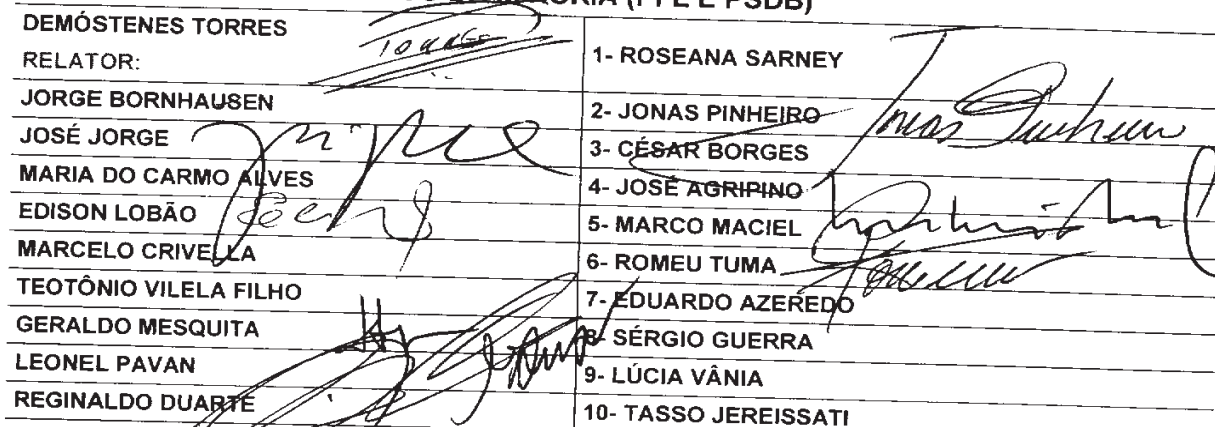 (PFL E PSDB)
DEMÓSTENES TORRES
RELATOR:
1- ROSEANA SARNEY
JORGE BORNHAUSEN
2- JONAS PINHEIRO
JOSÉ JORGE
3- CÉSAR BORGES
MARIA DO CARMO ALVES
4- JOSÉ AGRIPINO
EDISON LOBÃO
5- MARCO MACIEL
MARCELO CRIVELLA
6- ROMEU TUMA
TEOTÔNIO VILELA FILHO
7- EDUARDO AZEREDO
GERALDO MESQUITA
8- SÉRGIO GUERRA
LEONEL PAVAN
9- LÚCIA VÂNIA
REGINALDO DUARTE
10- TASSO JEREISSATI
Jonas Pinheiro